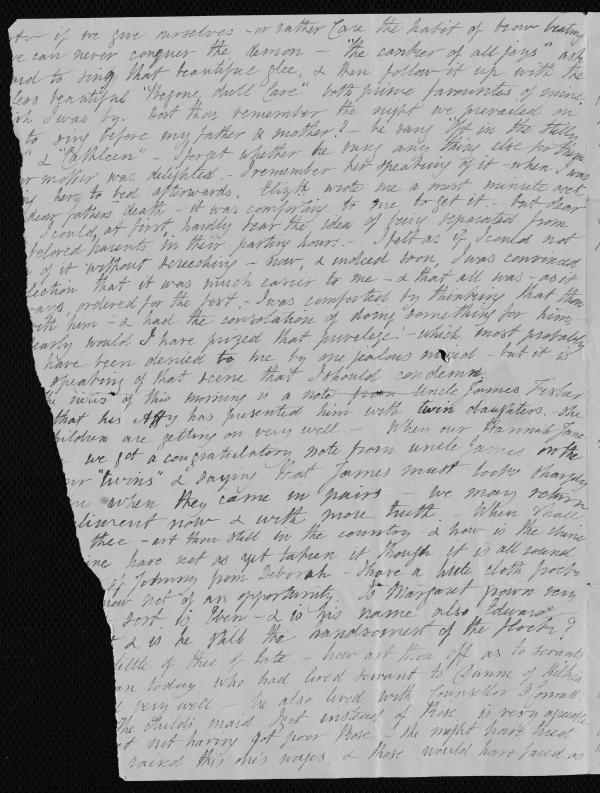 if we give ourselves - or rather Care the habit of brow beating
we can never conquer the demon - "the canker of all joys" ask
and to sing that beautiful glee, & then follow it up with the
less beautiful "Begone dull Care" both prime favourites of mine
I was by. Dost thou remember the night we prevailed on
to sing before my father & mother? - he sang "Oft in the stilly
" & "Cathleen" - I forget whether he sang any thing else for them
mother was delighted. - I remember her speaking of it - when I was
her to bed afterwards. Elizth wrote me a most minute acct
dear fathers death - it was comforting to me to get it - but dear
I could, at first, hardly bear the idea of being separated from
beloved parents in their parting hours. - I felt as if I could not
of it without screeching - now, & indeed soon, I was convinced
lection that it was much easier to me - & that all was - as it
ways, ordered for the best. - I was comforted by thinking that thou
with him - & had the consolation of doing something for him -
early would I have prized that privilege! - which most probably
have been denied to me by one jealous - but it is
speaking of that scene that I should condemn
the news of this morning is a note from Uncle James Fisher
that his Affy has presented him with twin daughters. - She
children are getting on very well. - When our Hannah Jane
we got a congratulatory note from uncle James on the
our "twins" & saying that James must look sharply
when they came in pairs. - we may return
pliment now & with more truth - When shall
thee - art thou still in the country - & how is the
have not as yet taken it though it is all round
Johnny from Deborah - I have a little cloth frock
now not of an opportunity. Is Margaret grown very
sort is Eben - & is his name also Edward
& is he still the handsomest of the flock?
little of thee of late. - how art thou off as to servants
today who had lived servant to Dunne of
very well - he also lived with Counsellor
The childs maid I got instead of Rose is very
not having got poor Rose - she might have lived
raised this one's wages, & Rose would have fared as